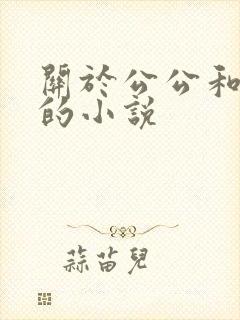 關於公公和
的小説
蒜苗兒